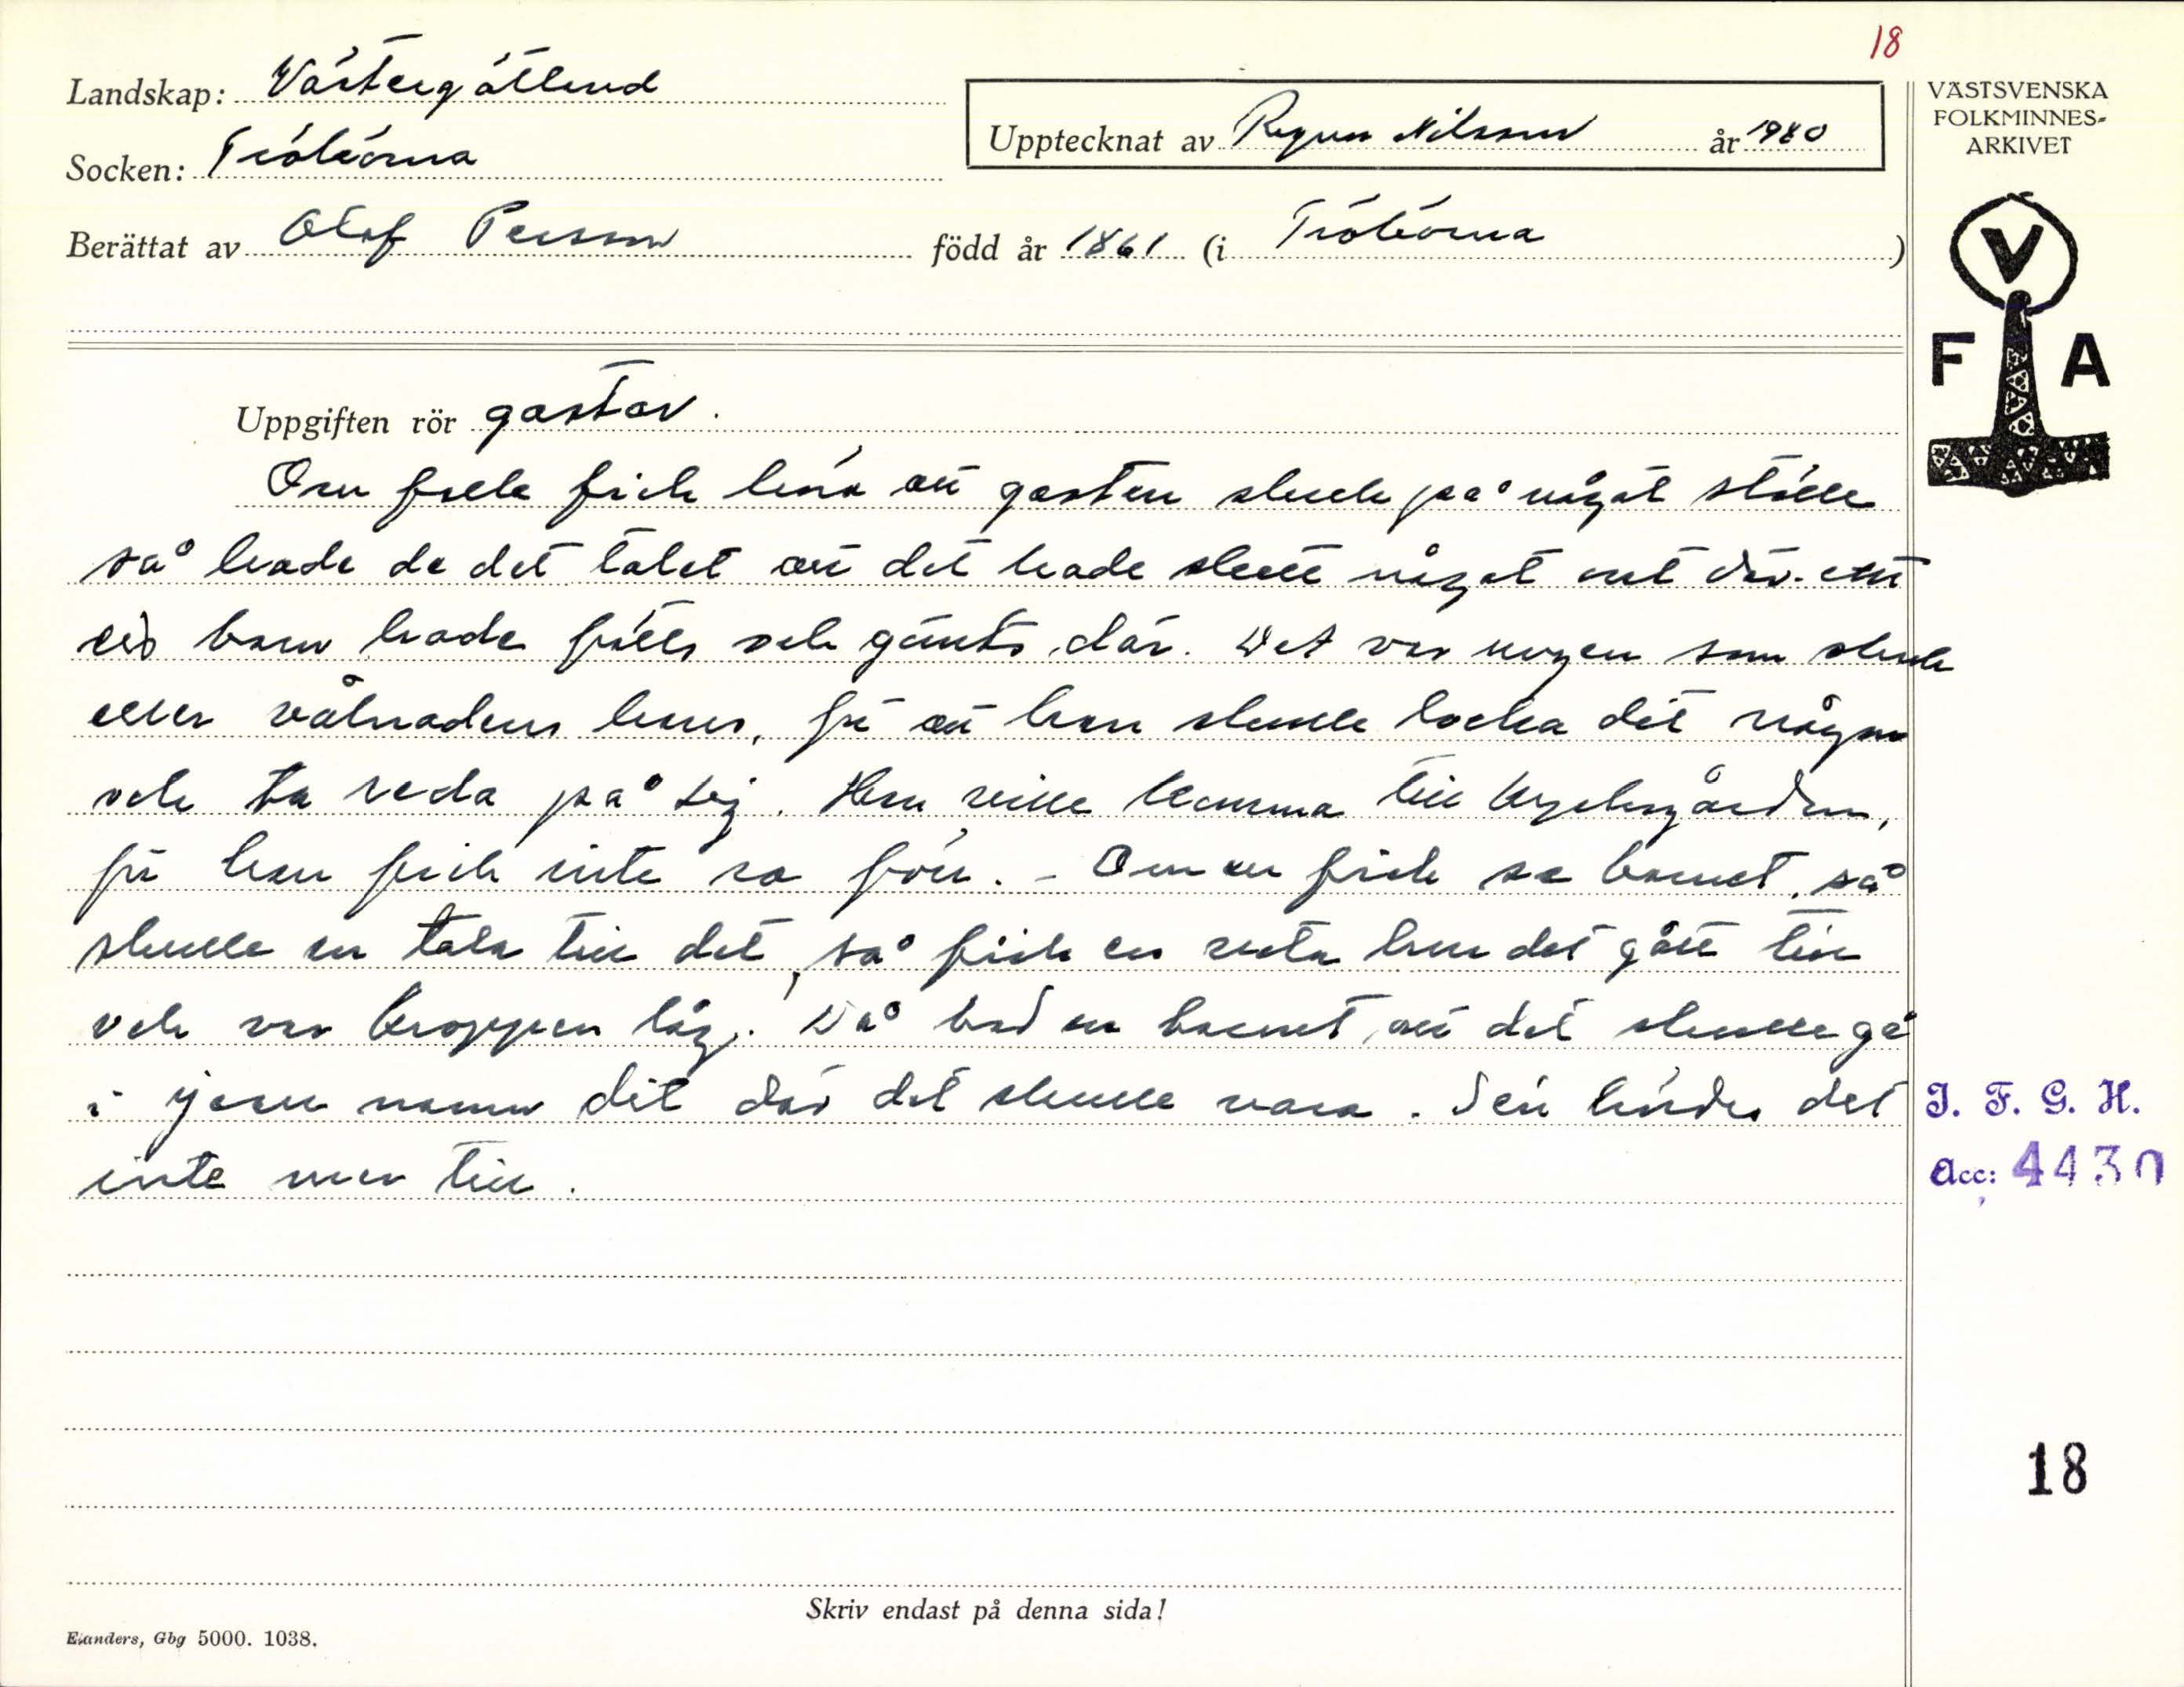 18
Landskap: Västergötland
Socken: Trökörna
Upptecknat av Ragnar Nilsson år 1940
Berättat av Olof Persson född år 1861 (i Trökörna)
VÄSTSVENSKA
FOLKMINNES-
ARKIVET
V
F A
Uppgiften rör gastar.
Om folk fick höra att gasten skrek på något ställe
så hade de det talet att det hade skett något ont där. ett
barn hade fötts och gömts där. Det var ungen som skrek
eller vålnaden hans, för att han skulle locka dit någon
och ta reda på sig. Han ville komma till kyrkogården,
för han fick inte ro förr. - Om en fick se barnet, så
skulle en tala till det, så fick en veta hur det gått till
och var kroppen låg. Då bad en barnet att det skulle gå
i Jesu namn dit där det skulle vara. Sen hördes det
inte mer till.
I. F. G. H.
Acc: 4430
18
Skriv endast på denna sida!
Elanders, Gbg 5000. 1038.